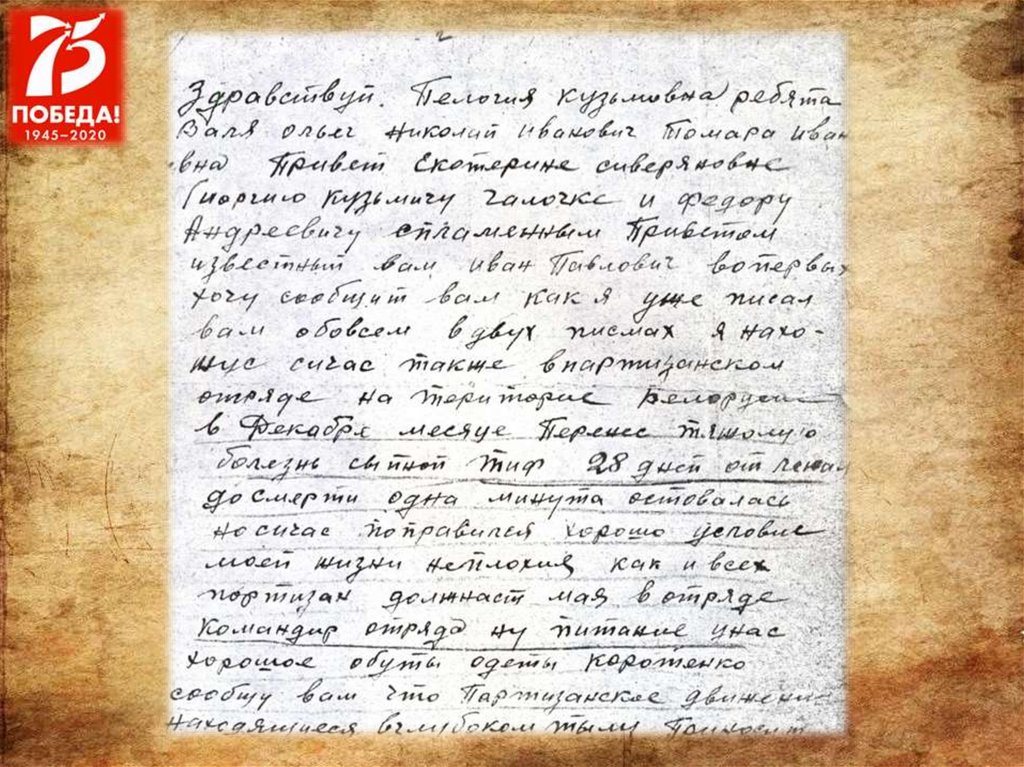 75
ПОБЕДА!
1945–2020
2
Здравствуй. Пелогия кузьмовна ребята
Валя ольег николай иванович Томара иван
вна Привет Екотерине сиверяновне
Гиоргию кузьмичу галочке и федору
Андреевичу спламенным Приветом
известный вам иван Павлович вопервых
хочу сообщит вам как я уже писал
вам обовсем вдвух писмах я нахо-
жус сичас также впартизанском
отряде на територие Белорусии
в Декабре месяце Перенес тяжолую
болезнь сыпной тиф 28 дней отлежал
досмерти одна минута остовалась
носичас поправился хорошо условие
моей жизни неплохия как и всех
портизан должнаст мая вотряде
командир отряда ну питание унас
хорошое обуты одеты коротенко
сообщу вам что Партизанское движение
находящиеся вглубоком тылу Приносит